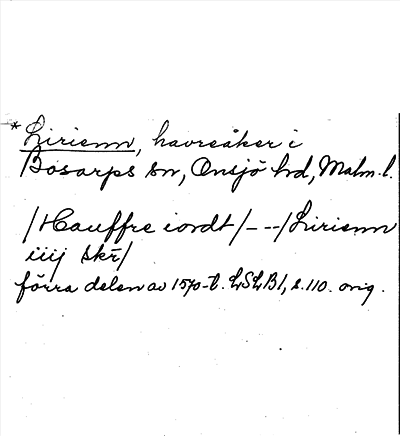 * Lirienn, havreåker i
Bosarps sn, Onsjö hd, Malm. l.
/Hauffre iordt/ - - -/Lirienn
iiij skr̄/
förra delen av 1570-t. LSLB1, s. 110. orig.